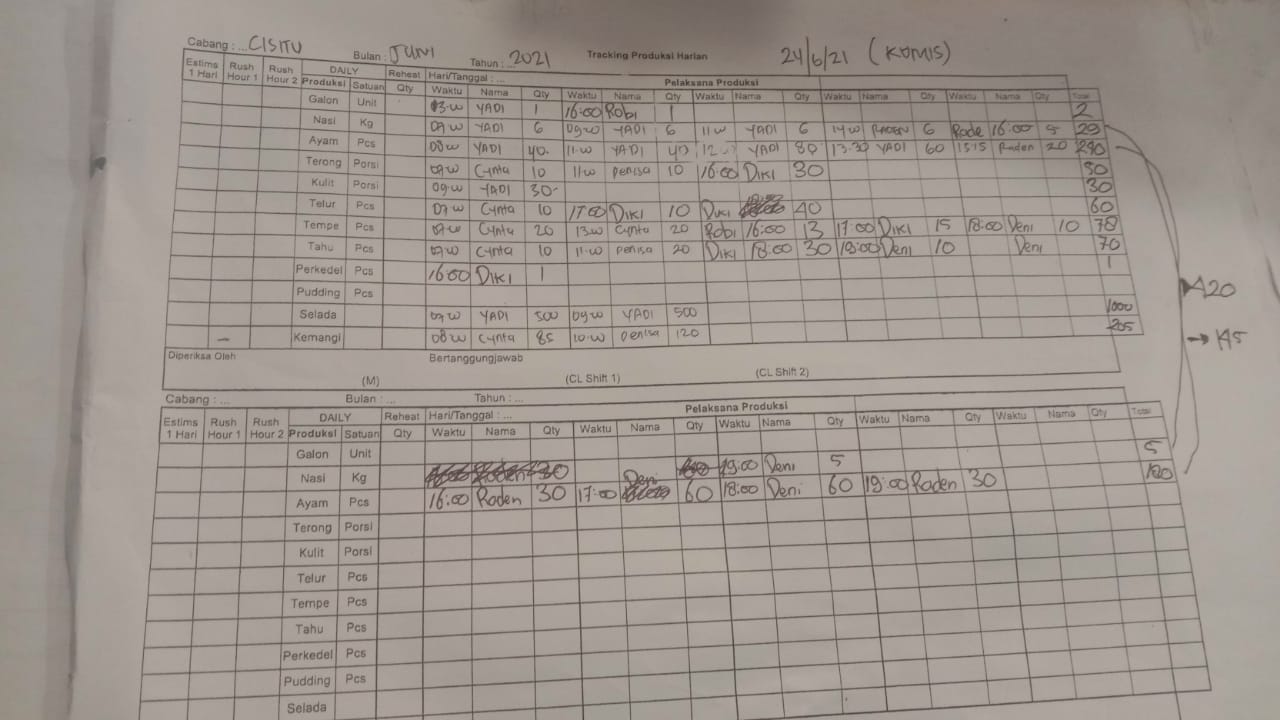 Cabang : ... CISITU Bulan : JUNI Tahun : ... 2021 Tracking Produksi Harian 24/6/21 (KAMIS)
Estims 1 Hari Rush Hour 1 Rush Hour 2 DAILY Reheat Hari/Tanggal : ... Pelaksana Produksi
Produksi Satuan Qty Waktu Nama Qty Waktu Nama Qty Waktu Nama Qty Waktu Nama Qty Waktu Nama Qty Total
Galon Unit 13.00 YADI 1 16:00 Robi 1 2
Nasi Kg 07.00 YADI 6 09.00 YADI 6 11.00 YADI 6 14.00 RADEN 6 Rade 16:00 5 29
Ayam Pcs 08.00 YADI 40. 11.00 YADI 40 12.00 YADI 80 13.30 YADI 60 15:15 Raden 20 240
Terong Porsi 07.00 Cynta 10 11.00 Denisa 10 16:00 DIKI 30 50
Kulit Porsi 09.00 YADI 30 30
Telur Pcs 07.00 Cynta 10 17:00 DIKI 10 DIKI 40 60
Tempe Pcs 07.00 Cynta 20 13.00 Cynta 20 Robi 16:00 13 17:00 DIKI 15 18:00 Deni 10 78
Tahu Pcs 07.00 Cynta 10 11.00 Denisa 20 DIKI 18:00 30 19:00 Deni 10 Deni 70
Perkedel Pcs 16:00 DIKI 1 1
Pudding Pcs
Selada 07.00 YADI 500 09.00 YADI 500 1000
Kemangi 08.00 Cynta 85 10.00 Denisa 120 205
Diperiksa Oleh Bertanggungjawab
(M) (CL Shift 1) (CL Shift 2)
A20
Cabang : ... Bulan : ... Tahun : ...
Estims 1 Hari Rush Hour 1 Rush Hour 2 DAILY Reheat Hari/Tanggal : ... Pelaksana Produksi
Produksi Satuan Qty Waktu Nama Qty Waktu Nama Qty Waktu Nama Qty Waktu Nama Qty Waktu Nama Qty Total
Galon Unit
Nasi Kg 19:00 Deni 5 5
Ayam Pcs 16:00 Raden 30 17:00 Deni 60 18:00 Deni 60 19:00 Raden 30 180
Terong Porsi
Kulit Porsi
Telur Pcs
Tempe Pcs
Tahu Pcs
Perkedel Pcs
Pudding Pcs
Selada